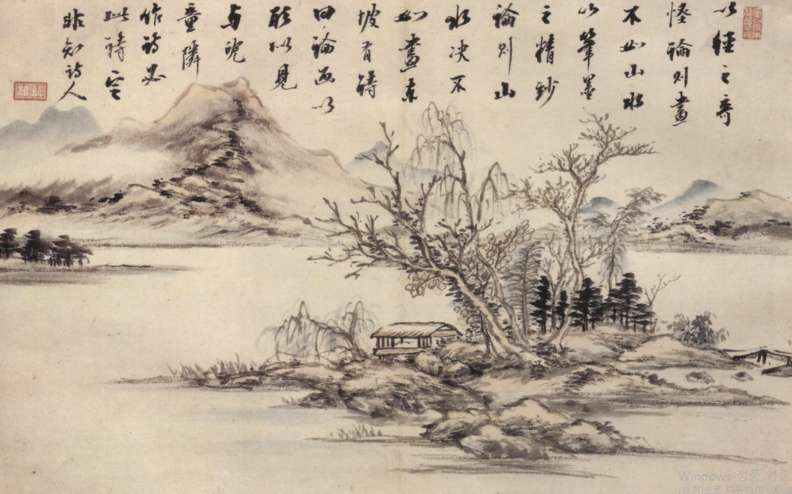 以徑之奇
怪論則畫
不如山水
以筆墨
之精妙
論則山
水決不
如畫東
坡有詩
曰論畫以
形似見
与兒
童隣
作詩必
此詩定
非知詩人
Windows 정품 인증